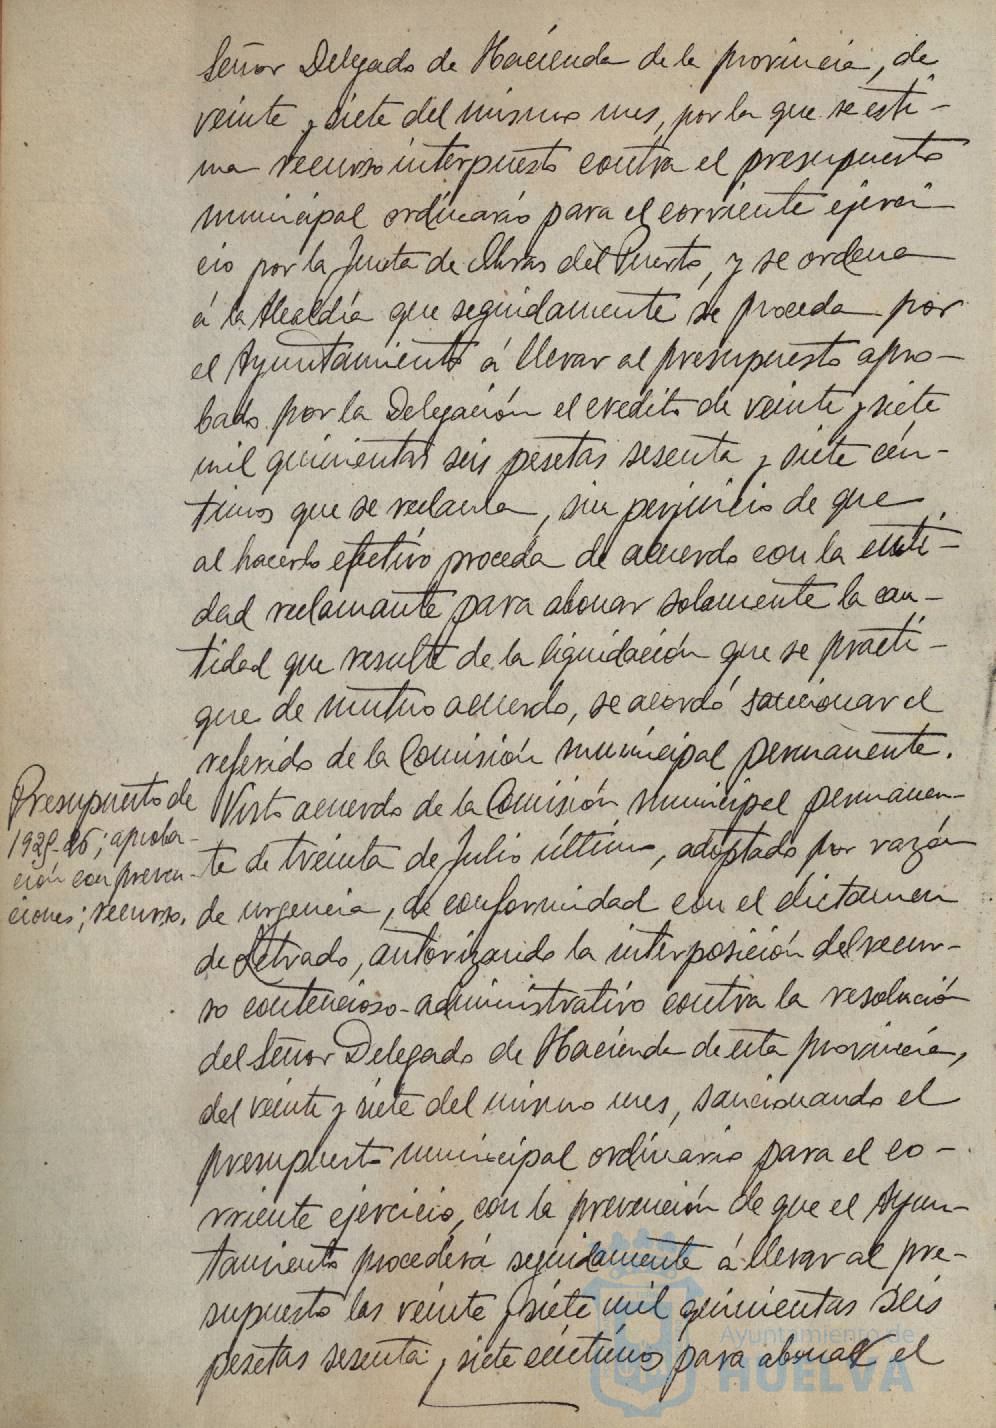 Señor Delegado de Hacienda de la provincia, de
veinte y siete del mismo mes, por la que se esti-
ma recurso interpuesto contra el presupuesto
municipal ordinario para el corriente ejerci
cio por la Junta de Obras del Puerto, y se ordena
á la Alcaldía que seguidamente se proceda por
el Ayuntamiento á llevar al presupuesto apro-
bado por la Delegación el credito de veinte y siete
mil quinientas seis pesetas sesenta y siete cén-
timos que se reclama, sin perjuicio de que
al hacerlo efectivo proceda de acuerdo con la enti-
dad reclamante para abonar solamente la can-
tidad que resulte de la liquidación que se practi-
que de mutuo acuerdo, se acordó sancionar el
referido de la Comisión municipal permanente.
Presupuesto de
1925-26; aproba-
ción con preven-
ciones; recurso.
Visto acuerdo de la Comisión municipal permanen-
te de treinta de Julio último, adoptado por razón
de urgencia, de conformidad con el dictamen
de Letrado, autorizando la interposición del recur-
so contencioso-administrativo contra la resolución
del Señor Delegado de Hacienda de esta provincia,
del veinte y siete del mismo mes, sancionando el
presupuesto municipal ordinario para el co-
rriente ejercicio, con la prevención de que el Ayun-
tamiento procederá seguidamente á llevar al pre-
supuesto las veinte y siete mil quinientas seis
pesetas sesenta y siete céntimos para abonar el
Ayuntamiento de
HUELVA